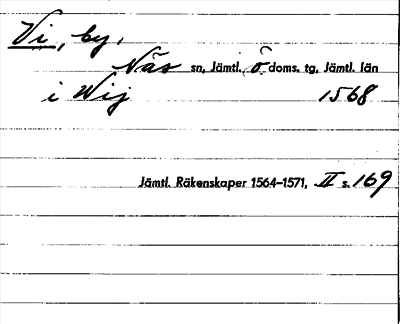 Vi, by,
Näs sn, Jämtl. ö. doms. tg, Jämtl. län
i Wij 1568
Jämtl. Räkenskaper 1564–1571, II s. 169